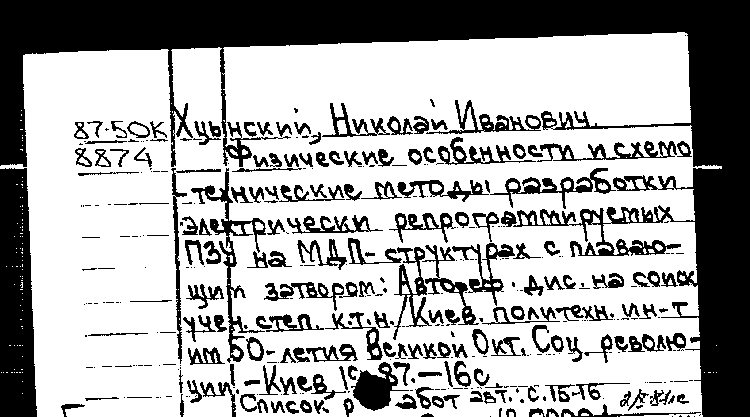 87-5ОК Хцынский, Николай Иванович.
8874 Физические особенности и схемо
-технические методы разработки
электрически репрограммируемых
ПЗУ на МДП-структурах с плаваю-
щим затвором: Автореф. дис. на соиск
учен. степ. к.т.н. / Киев. политехн. ин-т
им 50-летия Великой Окт. Соц. револю-
ции. -Киев, 87.-16с
Список р абот авт.: с.15-16